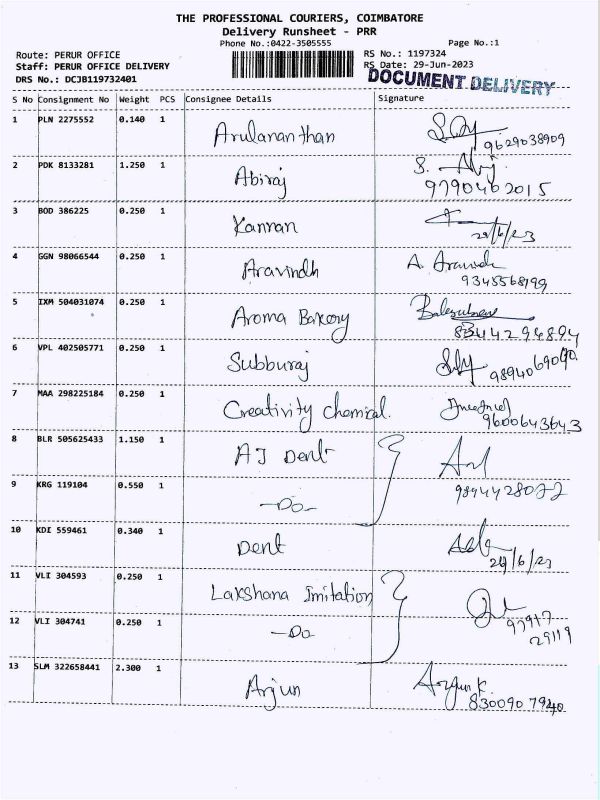 THE PROFESSIONAL COURIERS, COIMBATORE
Delivery Runsheet - PRR
Phone No.:0422-3505555 Page No.:1
Route: PERUR OFFICE RS No.: 1197324
Staff: PERUR OFFICE DELIVERY RS Date: 29-Jun-2023
DRS No.: DCJB119732401 DOCUMENT DELIVERY
S No Consignment No Weight PCS Consignee Details Signature
1 PLN 2275552 0.140 1 Arulananthan 9629038909
2 PDK 8133281 1.250 1 Abiraj S. Abij
9790402015
3 BOD 386225 0.250 1 Kannan
29/6/23
4 GGN 98066544 0.250 1 Aravindh A. Aravindh
9345568199
5 IXM 504031074 0.250 1 Aroma Bakery
8344294894
6 VPL 402505771 0.250 1 Subburaj
9894069090
7 MAA 298225184 0.250 1 Creativity chemical.
9600643643
8 BLR 505625433 1.150 1 AJ Dent
9 KRG 119104 0.550 1 -Do- 9894428072
10 KDI 559461 0.340 1 Dent
29/6/23
11 VLI 304593 0.250 1 Lakshana Imitation
12 VLI 304741 0.250 1 -Do 97917
29119
13 SLM 322658441 2.300 1 Arjun Arjun K.
830090 7940